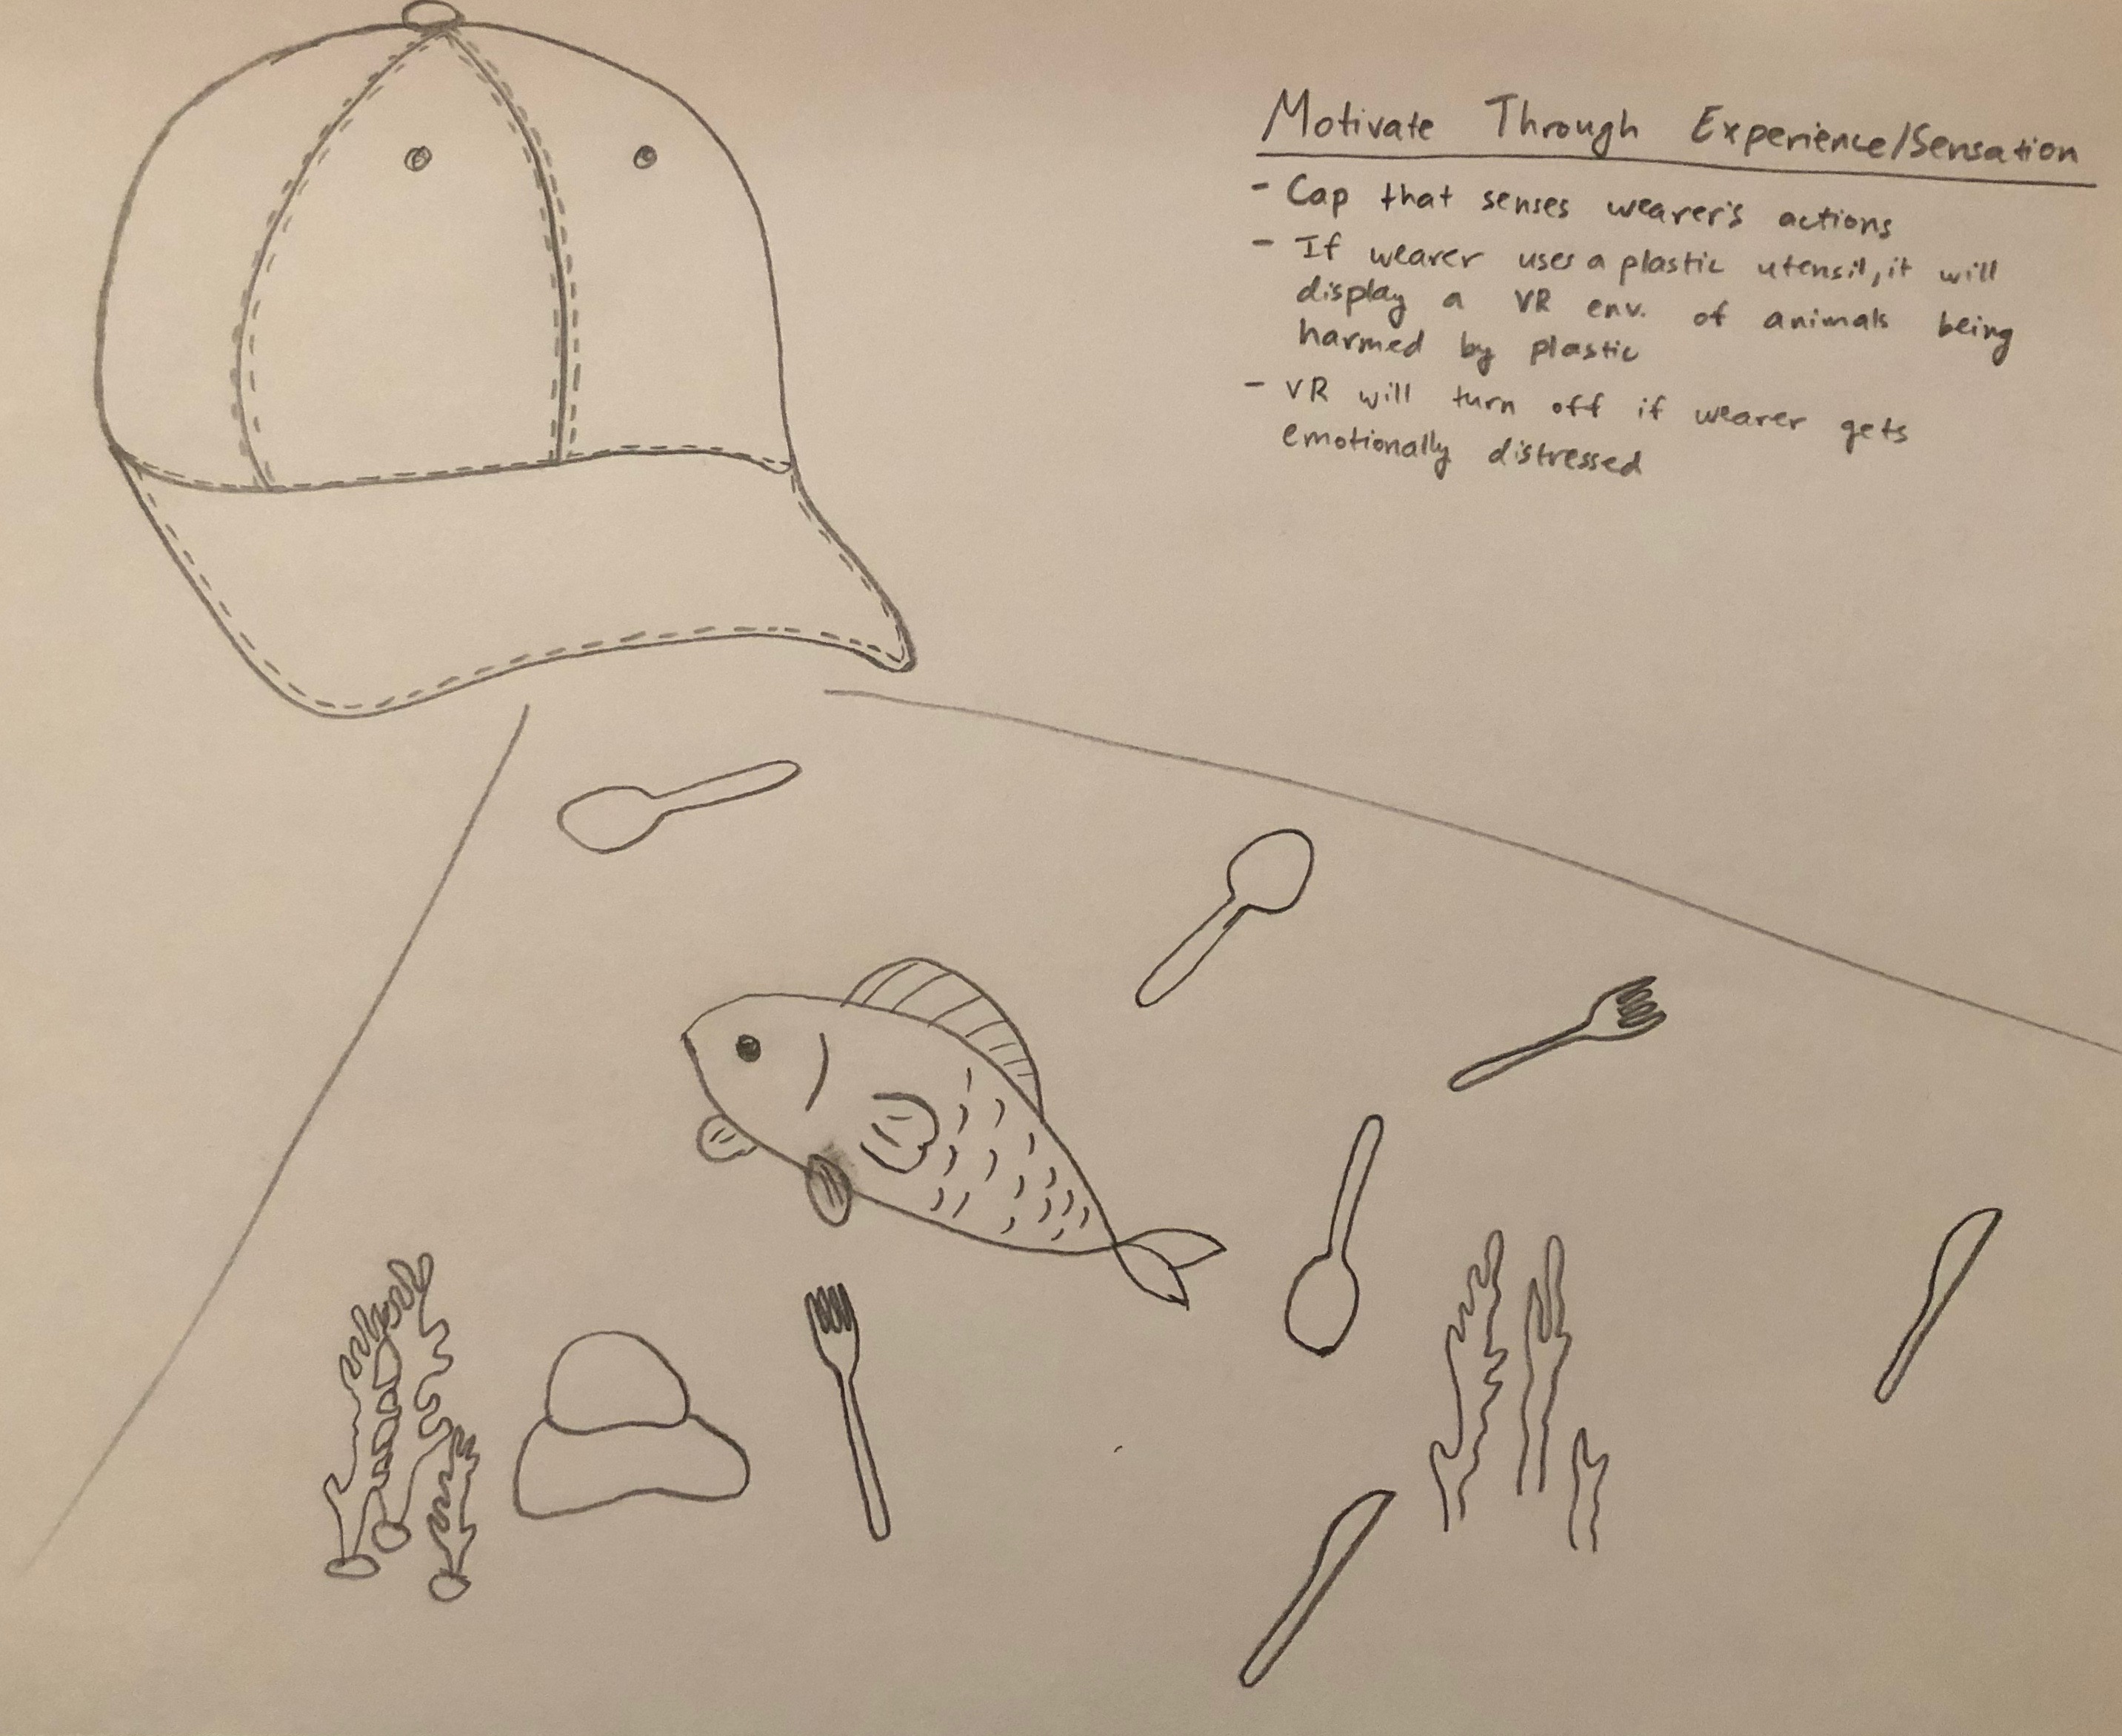 Motivate Through Experience/Sensation
- Cap that senses wearer's actions
- If wearer uses a plastic utensil, it will
display a VR env. of animals being
harmed by plastic
- VR will turn off if wearer gets
emotionally distressed